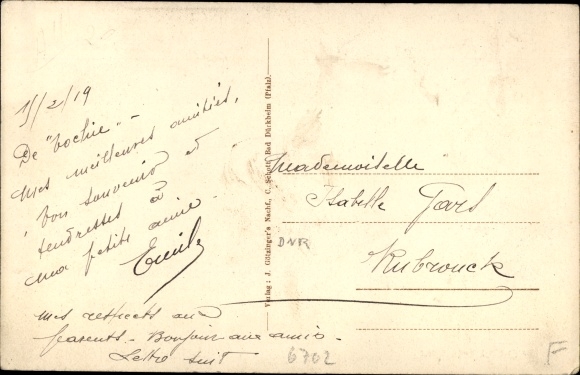 15/2/19
De "bochie" -
Mes meilleures amitiés,
bon souvenir et
tendresses à
ma petite amie.
Emile
mes respects aux
parents - Bonjour aux amis.
Lettre suit
Verlag: J. Götzinger's Nachf., C. Schott, Bad Dürkheim (Pfalz).
Mademoiselle
Isabelle
Rubrouck
DNR
6702
F